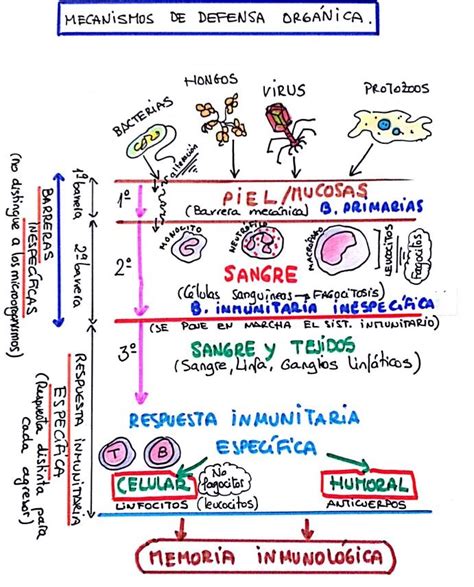 MECANISMOS DE DEFENSA ORGÁNICA.
BACTERIAS
HONGOS
VIRUS
PROTOZOOS
1ª barrera
1º
PIEL/MUCOSAS
(Barrera mecánica) B. PRIMARIAS
BARRERAS
INESPECÍFICAS
(no distingue a los microorganismos)
2ª barrera
2º
MONOCITO
NEUTRÓFILO
MACRÓFAGO
LEUCOCITOS
Fagocitos
SANGRE
(Células sanguíneas → FAGOCITOSIS)
B. INMUNITARIA INESPECÍFICA
(SE PONE EN MARCHA EL SIST. INMUNITARIO)
3º
SANGRE Y TEJIDOS
(Sangre, Linfa, Ganglios linfáticos)
RESPUESTA INMUNITARIA
ESPECÍFICA
(Respuesta distinta para
cada agresor)
RESPUESTA INMUNITARIA
ESPECÍFICA
T
B
CELULAR
No
fagocitos
HUMORAL
LINFOCITOS (leucocitos)
ANTICUERPOS
MEMORIA INMUNOLÓGICA